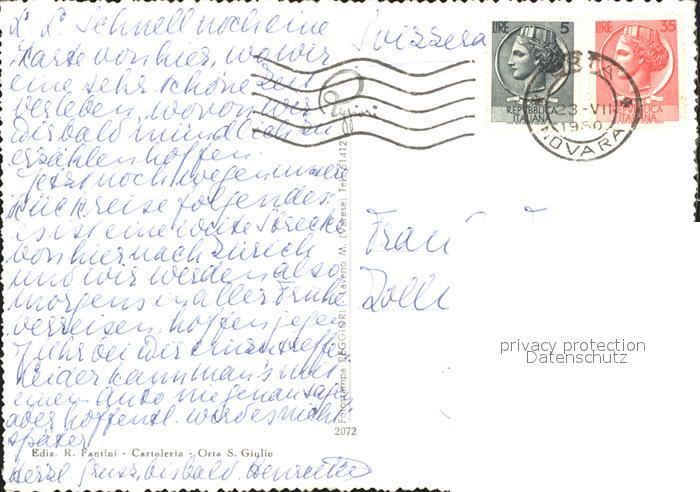 L. L. Schnell noch eine
Karte von hier, wo wir
eine sehr schöne Zeit
verleben, wovon wir
Dir bald mündlich zu
erzählen hoffen.
Jetzt noch wegen unserer
Rückreise folgendes:
es ist eine weite Strecke
von hier nach Zürich
und wir werden also
morgens in aller Frühe
verreisen, hoffen gegen
7 Uhr bei Dir einzutreffen
leider kann man's mit
einem Auto nie genau sagen
aber hoffentl. wird es nicht
später
Herzl. Gruss, bis bald, Henriette
Svizzera
LIRE 5
REPUBBLICA
ITALIANA
LIRE 35
REPUBBLICA
ITALIANA
23-VII
NOVARA
Frau
privacy protection
Datenschutz
Fotostampa REGGIORI - Laveno M. (Varese) Tel. 61412
2072
Ediz. R. Fantini - Cartoleria - Orta S. Giulio